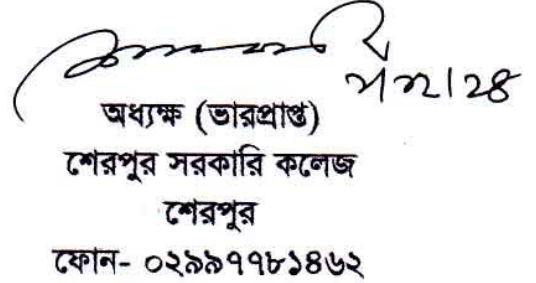 অধ্যক্ষ (ভারপ্রাপ্ত)
শেরপুর সরকারি কলেজ
শেরপুর
ফোন- ০২৯৯৭৭৮১৪৬২